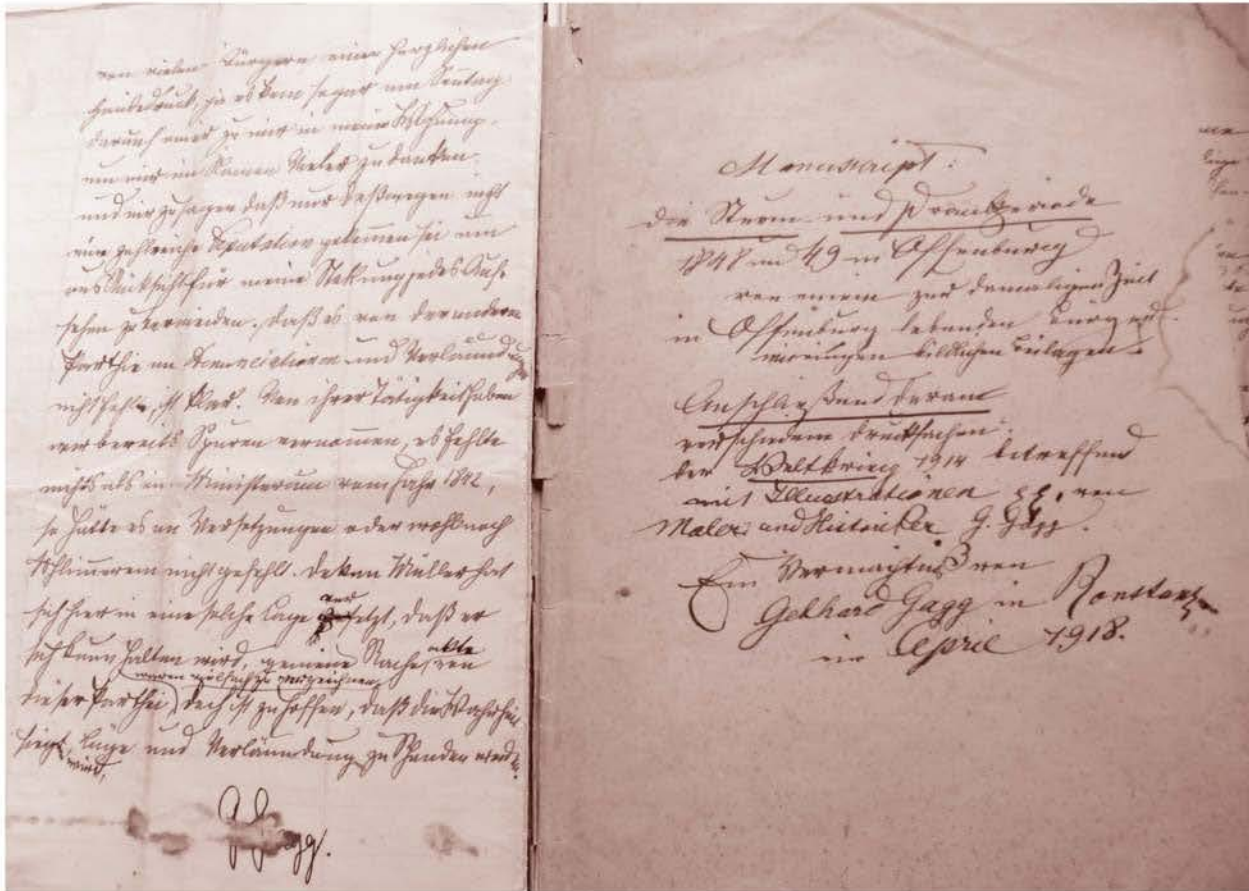 von vielen Bürgern einen herzlichen
Händedruck, ja es kam sogar am Sonntag
darauf einer zu mir in meine Wohnung
um mir im Namen Vieler zu danken
und mir zu sagen daß nur deßwegen nicht
eine zahlreiche Deputation gekommen sei um
aus Rücksicht für meine Stellung jedes Auf-
sehen zu vermeiden. daß es von der andern
Parthie an Denunciationen und Verläumdungen
nicht fehlte, ist klar. Von ihrer Tätigkeit haben
wir bereits Spuren vernommen, es fehlte
nichts als ein Ministerium vom Jahr 1842,
so hätte es an Versetzungen oder wohl noch
Schlimmerem nicht gefehlt. Dekan Müller hat
sich hier in eine solche Lage versetzt, daß er
sich kaum halten wird, gemeine Racheakte von
waren vielfach zu verzeichnen
dieser Parthei, doch ist zu hoffen, daß die Wahrheit
siegen wird, Lüge und Verläumdung zu Schanden werden.
G. Gagg.
Manuscript:
die Sturm- und Drangperiode
1848 und 49 in Offenburg
von einem zur damaligen Zeit
in Offenburg lebenden Bürger
mit einigen bildlichen Beilagen.
Anschließend daran
verschiedene Drucksachen.
der Weltkrieg 1914 betreffend
mit Illustrationen von
Maler und Historiker G. Gagg.
Ein Vermächtniß von
Gebhard Gagg in Konstanz
im April 1918.